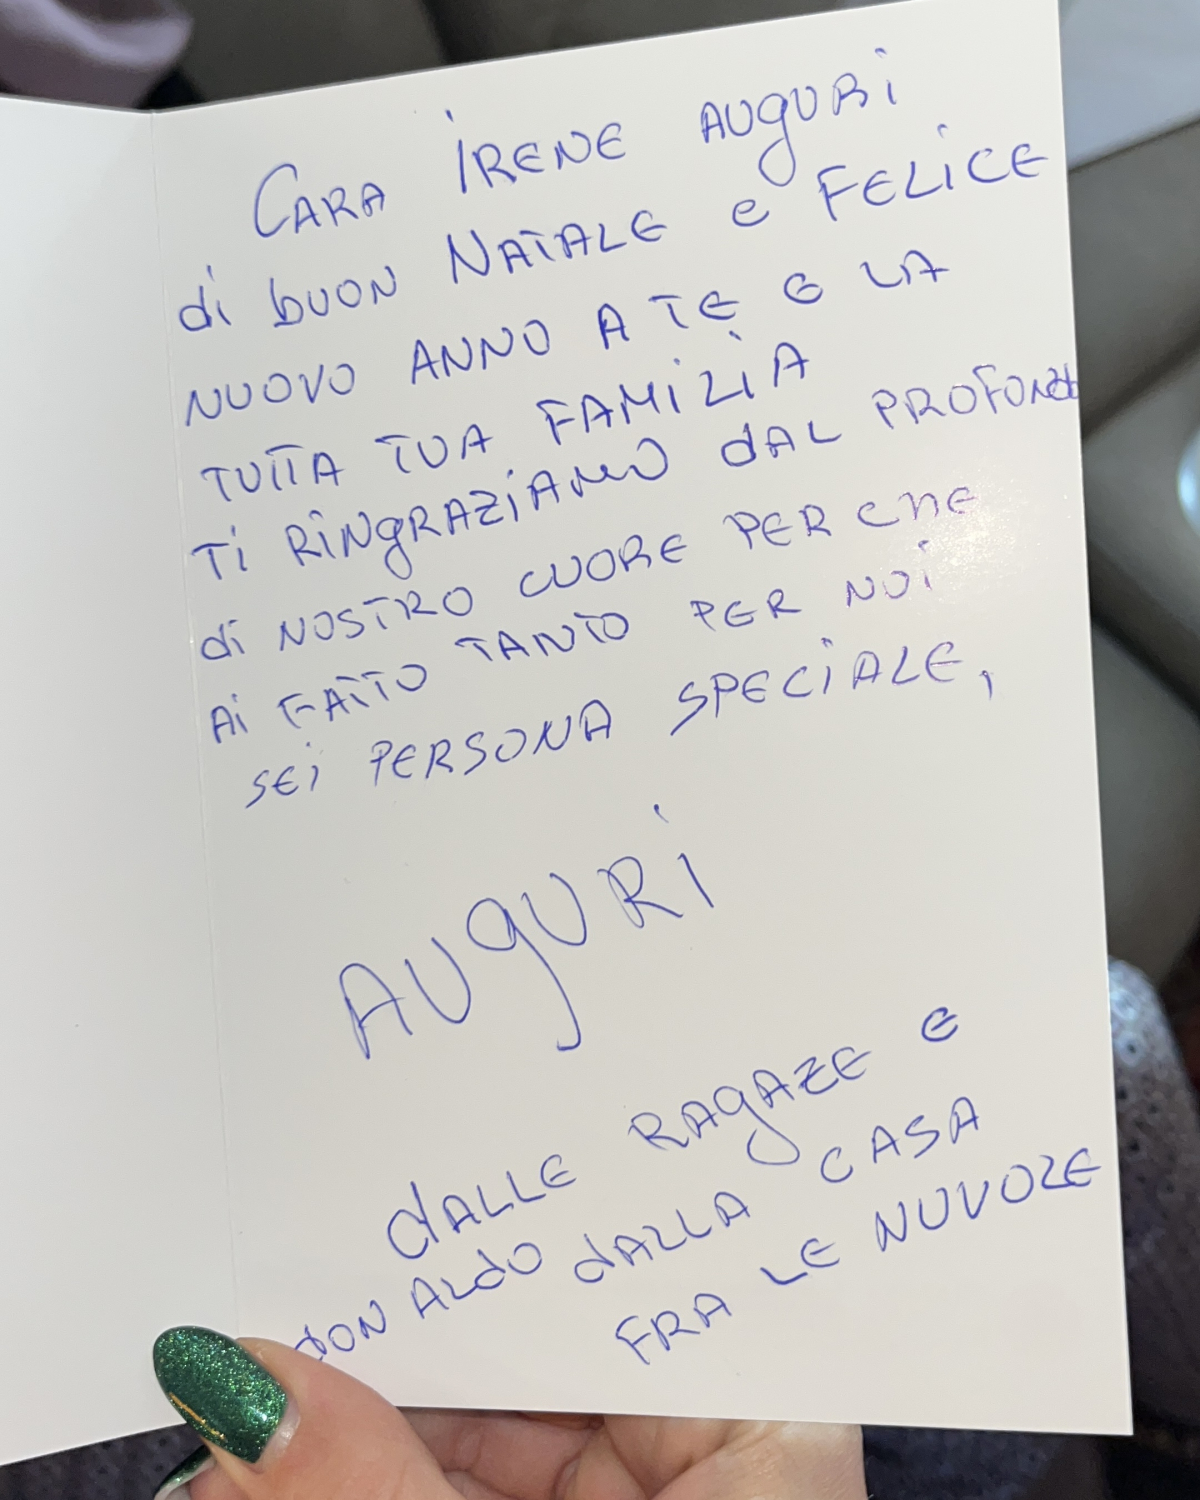 CARA IRENE AUGURI
di buON NATALE e FELICE
NUOVO ANNO A TE E LA
TUTTA TUA FAMILIA
Ti RiNgRAZiAMO dAL PROFONdO
di NOSTRO CUORE PER CHE
Ai FATTO TANTO PER NOi
SEi PERSONA SPECiALE,
AUgURi
dALLE RAgAZE E
dON ALdO dALLA CASA
FRA LE NUVOLE